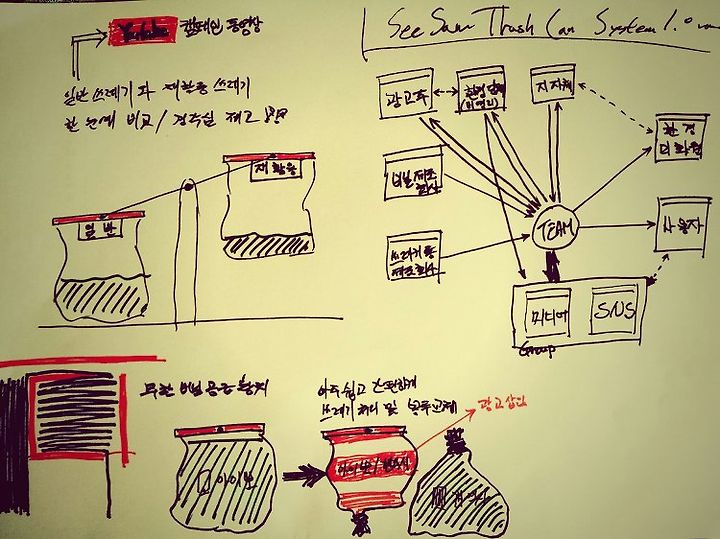 Youtube 캠페인 동영상
See Saw Trash Can System 1.0
일반쓰레기와 재활용 쓰레기
한 눈에 비교 / 경각심 제고
광고주
환경단체
(비영리)
지자체
환경
미화원
재활용
일반
비닐 제조
회사
TEAM
사용자
쓰레기통
제조회사
미디어
SNS
Group
무한 비닐 공급 장치
아주 쉽고 간편하게
쓰레기 처리 및 봉투교체
광고삽입